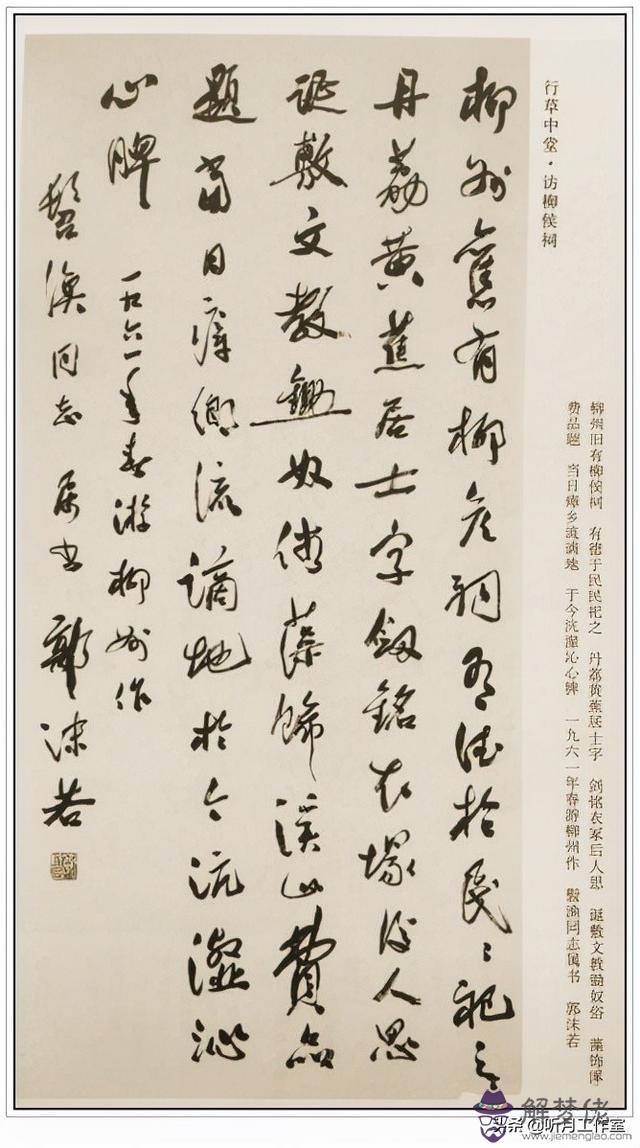 行草中堂·访柳侯祠
柳州旧有柳侯祠 有德于民民祀之 丹荔黄蕉居士字 剑铭衣冢后人思 诞敷文教锄奴俗 藻饰溪
费品题 当日瘴乡流谪地 于今沆瀣沁心脾 一九六一年春游柳州作 同志属书 郭沫若
柳州舊有柳侯祠有德於民〻祀之
丹荔黄蕉居士字劔銘衣塚後人思
誕敷文教鋤奴俗藻飾溪山費品
題當日瘴鄉流謫地於今沆瀣沁
心脾 一九六一年春游柳州作
同志属书 郭沫若
头条@听月工作室
解梦佬
www.jiemenglao.com